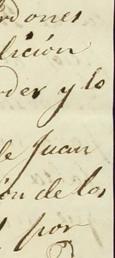 rdones
lición
der y lo
de Juan
ón de los
por